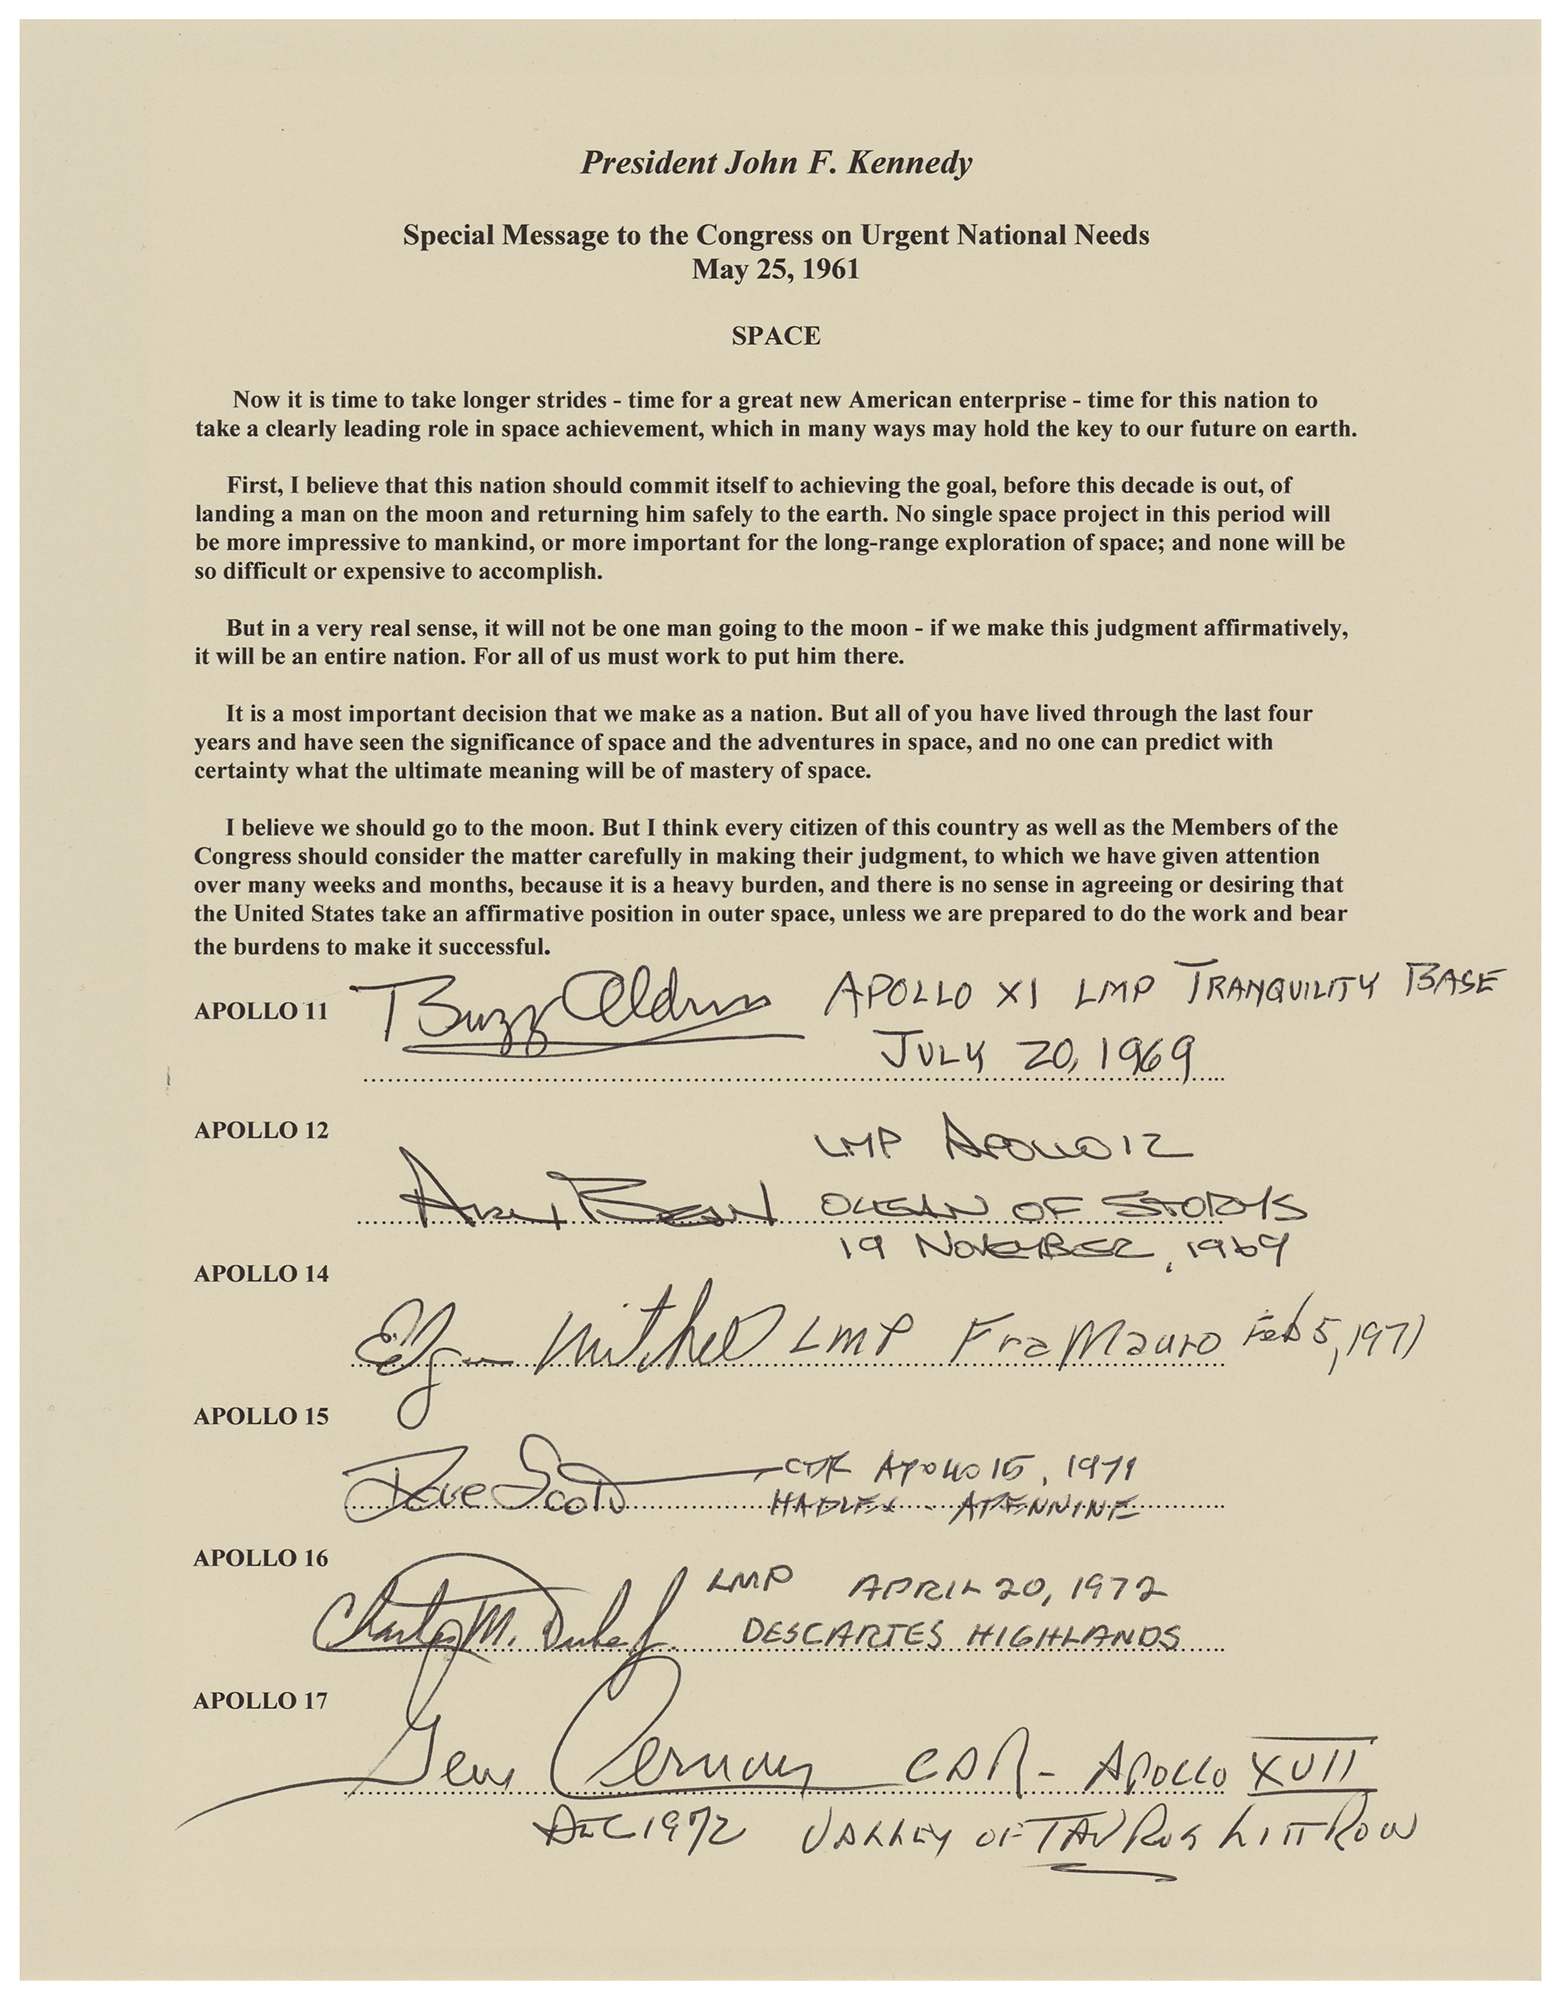 President John F. Kennedy
Special Message to the Congress on Urgent National Needs
May 25, 1961
SPACE
Now it is time to take longer strides - time for a great new American enterprise - time for this nation to
take a clearly leading role in space achievement, which in many ways may hold the key to our future on earth.
First, I believe that this nation should commit itself to achieving the goal, before this decade is out, of
landing a man on the moon and returning him safely to the earth. No single space project in this period will
be more impressive to mankind, or more important for the long-range exploration of space; and none will be
so difficult or expensive to accomplish.
But in a very real sense, it will not be one man going to the moon - if we make this judgment affirmatively,
it will be an entire nation. For all of us must work to put him there.
It is a most important decision that we make as a nation. But all of you have lived through the last four
years and have seen the significance of space and the adventures in space, and no one can predict with
certainty what the ultimate meaning will be of mastery of space.
I believe we should go to the moon. But I think every citizen of this country as well as the Members of the
Congress should consider the matter carefully in making their judgment, to which we have given attention
over many weeks and months, because it is a heavy burden, and there is no sense in agreeing or desiring that
the United States take an affirmative position in outer space, unless we are prepared to do the work and bear
the burdens to make it successful.
APOLLO 11 Buzz Aldrin APOLLO XI LMP TRANQUILITY BASE
JULY 20, 1969
APOLLO 12 LMP APOLLO 12
Alan Bean OCEAN OF STORMS
19 NOVEMBER, 1969
APOLLO 14
Edgar Mitchell LMP Fra Mauro Feb 5, 1971
APOLLO 15
Dave Scott CDR APOLLO 15, 1971
HADLEY - APENNINE
APOLLO 16 LMP APRIL 20, 1972
Charles M. Duke Jr. DESCARTES HIGHLANDS
APOLLO 17
Gene Cernan CDR - APOLLO XVII
DEC 1972 VALLEY OF TAURUS LITTROW